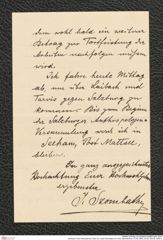 dem wohl bald ein weiterer
Betrag zur Fortführung der
Arbeiten nachfolgen müssen
wird.
Ich fahre heute Mittag
ab, um über Laibach und
Tarvis gegen Salzburg zu
kommen. Bis zum Beginn
der Salzburger Anthropologen-
Versammlung werd ich in
Seeham, Post Mattsee,
bleiben.
In ganz ausgezeichneter
Hochachtung Euer Hochwohlgeboren
ergebenster
J. Szombathy